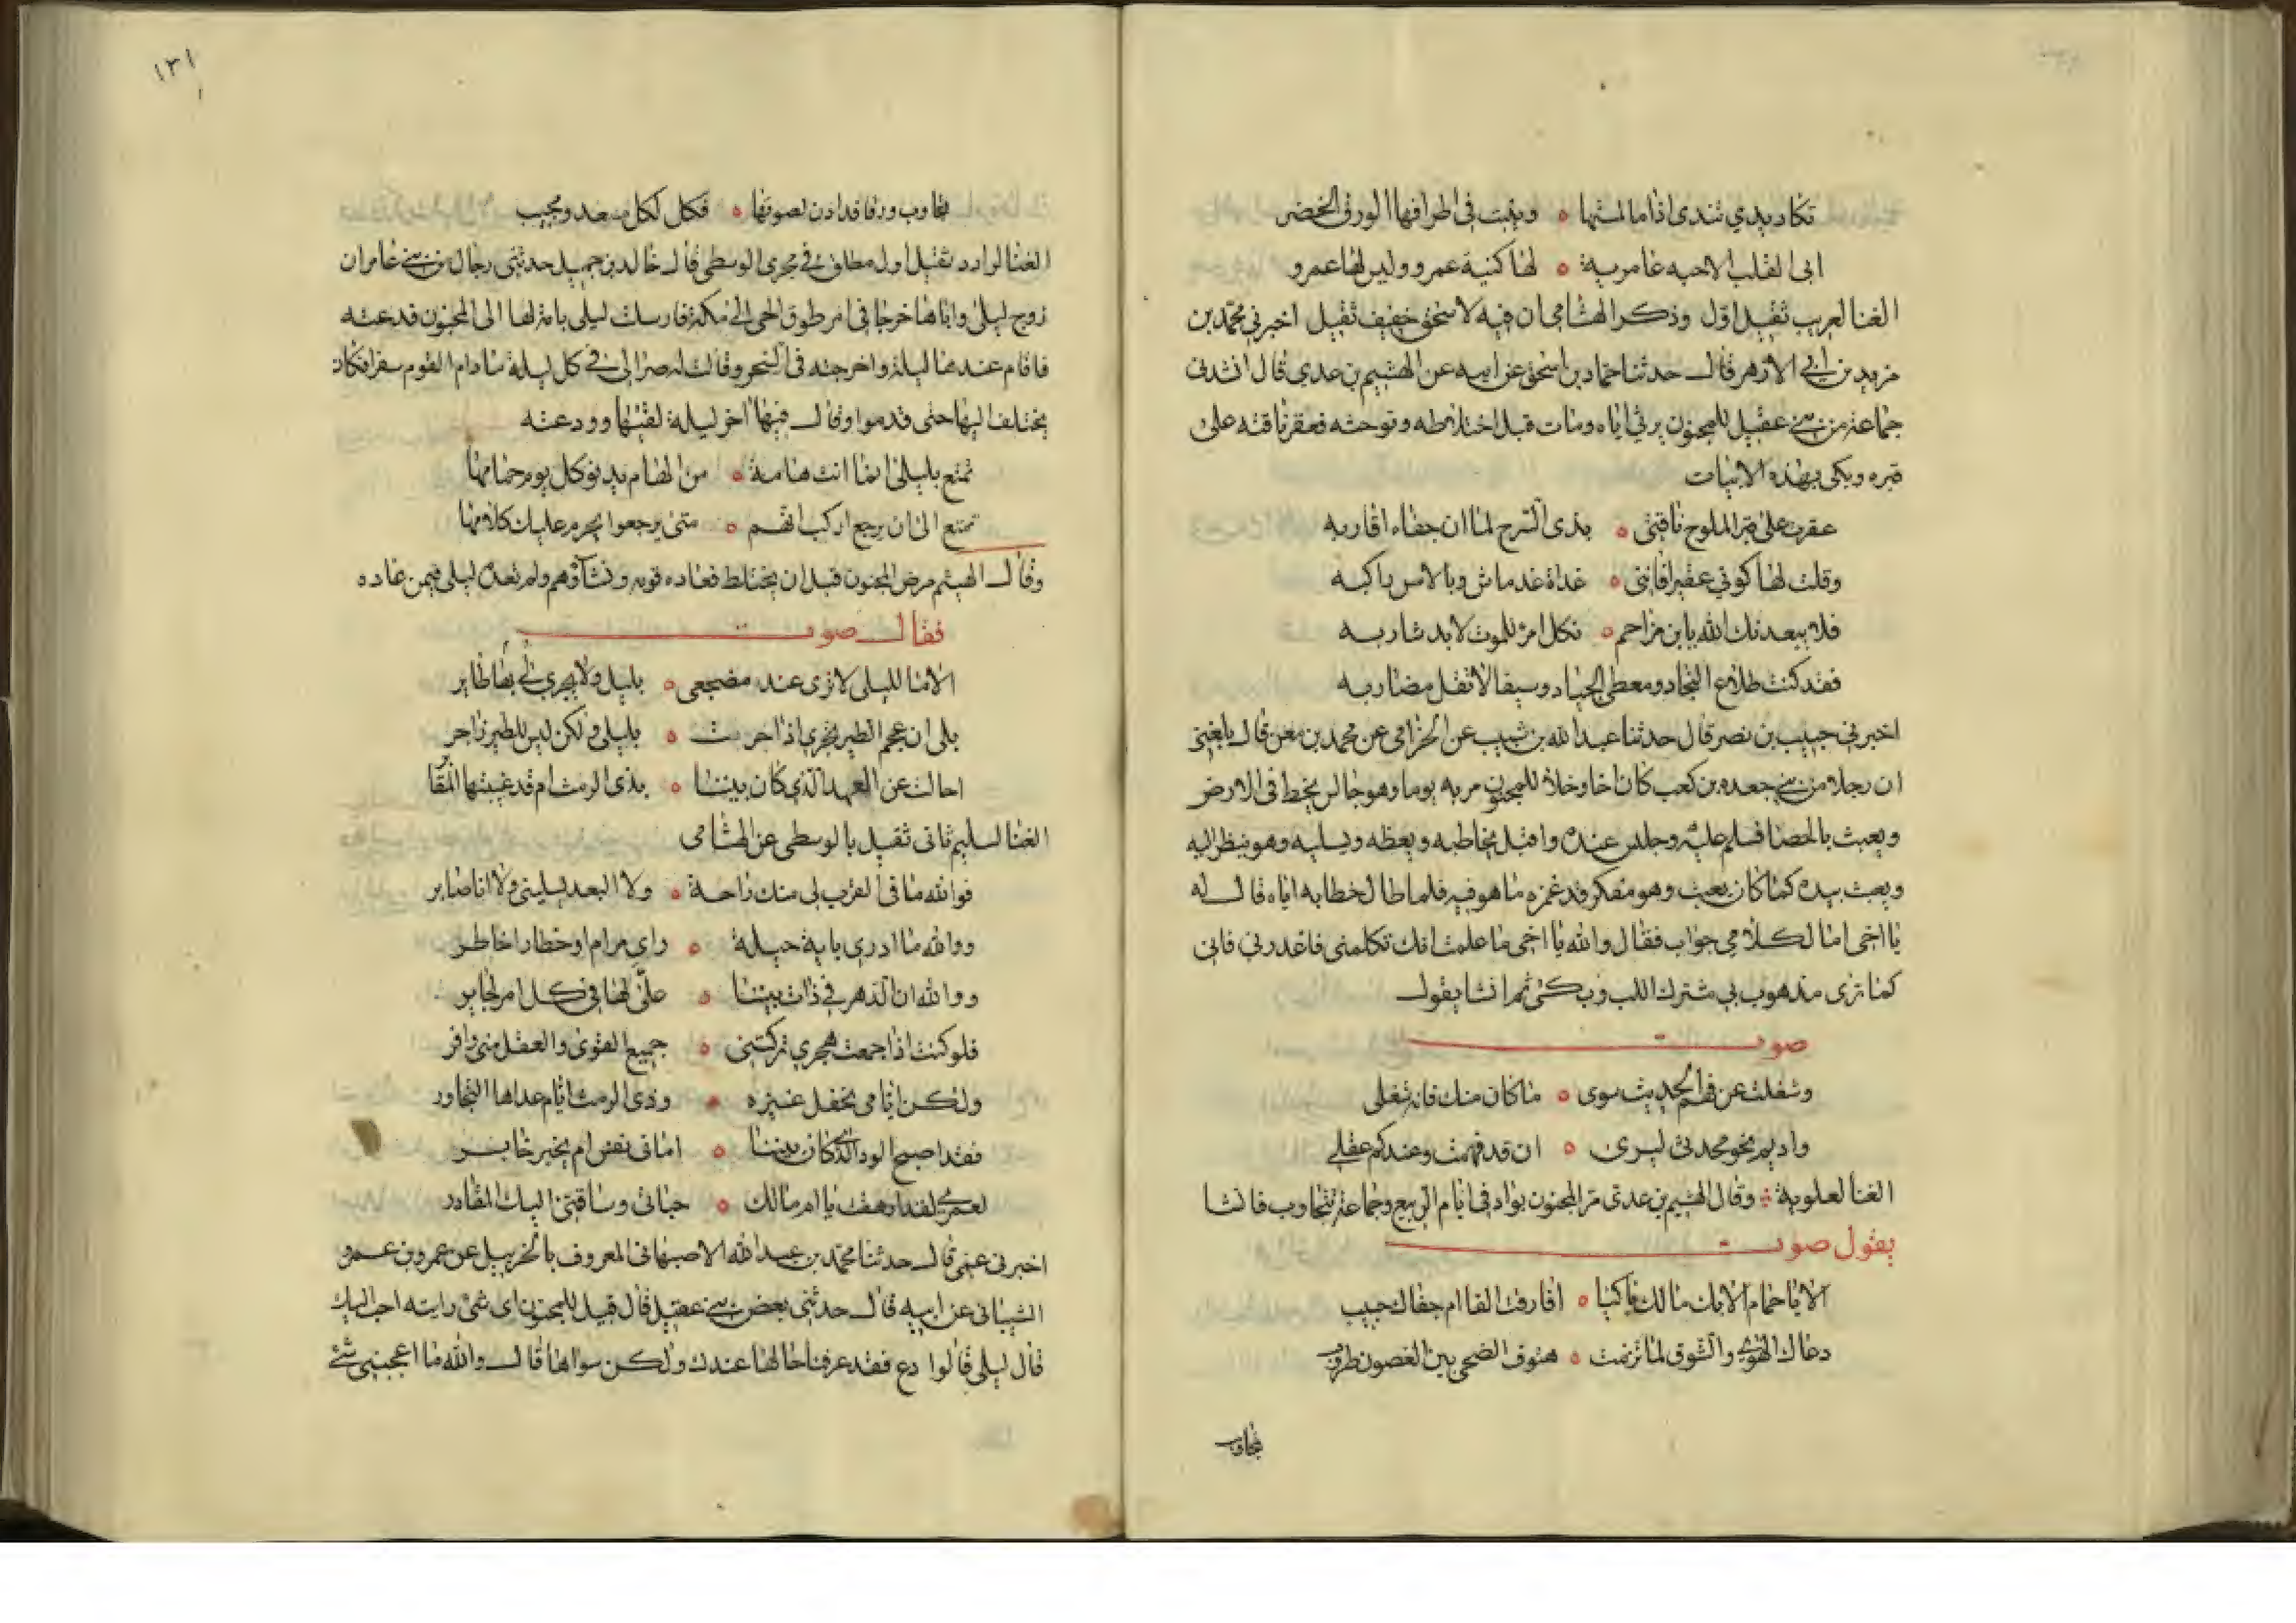 تكاد يدي تندى اذا ما لمستها ٥ وينبت في اطرافها الورق الخضر
ابى القلب الا حبه عامرية ٥ لها كنية عمرو وليس لها عمرو
الغنا لعريب ثقيل اول وذكر الهشامي ان فيه لاسحق خفيف ثقيل اخبرني محمد بن
مزيد بن ابي الازهر قال حدثنا حماد بن اسحق عن ابيه عن الهيثم بن عدي قال انشدني
جماعة من بني عقيل للمجنون يرثي اباه ومات قبل اختلاطه وتوحشه فعقر ناقته على
قبره وبكى بهذه الابيات
عقرت على قبر الملوح ناقتي ٥ بذى السرح لما ان جفاه اقاربه
وقلت لها كوني عقيرا فانني ٥ غداة غد ماش وبالامس راكبه
فلا يبعدنك الله يا ابن مزاحم ٥ فكل امرء للموت لا بد شاربه
فقد كنت طلاع النجاد ومعطي الجياد وسيفا لا تفل مضاربه
اخبرني حبيب بن نصر قال حدثنا عبد الله بن شبيب عن الحزامي عن محمد بن معن قال بلغني
ان رجلا من بني جعده بن كعب كان اخا وخلا للمجنون مر به يوما وهو جالس يخط في الارض
ويعبث بالحصا فسلم عليه وجلس عنده واقبل يخاطبه ويعظه ويسليه وهو ينظر اليه
ويعبث بيده كما كان يعبث وهو مفكر قد غمزه ما هو فيه فلما طال خطابه اياه قال له
يا اخى اما لكلامي جواب فقال والله يا اخى ما علمت انك تكلمني فاعذرني فاني
كما ترى مذهوب بي مشترك اللب وبكى ثم انشا يقول
صوت
وشغلت عن فهم الحديث سوى ٥ ما كان منك فانه شغلى
واديم نحو محدثي ليرى ٥ ان قد فهمت وعندكم عقلي
الغنا لعلوية وقال الهيثم بن عدي مر المجنون بواد في ايام الربيع وجماعة تتجاوب فانشا
يقول صوت
الا يا حمام الايك ما لك باكيا ٥ افارقت الفا ام جفاك حبيب
دعاك الهوى والشوق لما ترنمت ٥ هتوف الضحى بين الغصون طروب
تجاوب
١٣١
تجاوب ورقا قد اذن لصوتها ٥ فكل لكل مسعد ومجيب
الغنا لرادد ثقيل اول مطلق في مجرى الوسطى قال خالد بن جميل حدثني رجال من بني عامر ان
زوج ليلى واباها خرجا في امر طرق الحى الى مكة فارسلت ليلى بامة لها الى المجنون فدعته
فاقام عندها ليلة واخرجته في السحر وقالت له صر الى في كل ليلة ما دام القوم سفرا فكان
يختلف اليها حتى قدموا وقال فيها اخر ليلة لقيها وودعته
تمتع بليلى انما انت هامة ٥ من الهام يدنو كل يوم حمامها
تمتع الى ان يرجع الركب انهم ٥ متى يرجعوا يحرم عليك كلامها
وقال الهيثم مرض المجنون قبل ان يختلط فعاده قومه ونساؤهم ولم تعده ليلى فيمن عاده
فقال صوت
الا ما لليلى لا ترى عند مضجعي ٥ بليل ولا يجري لي بها طاير
بلى ان عجم الطير تجري اذا جرت ٥ بليلى ولكن ليس للطير زاجر
احالت عن العهد الذي كان بيننا ٥ بذى الرمث ام قد غيبتها المقابر
الغنا لسليم ثاني ثقيل بالوسطى عن الهشامي
فوالله ما في القرب لي منك راحة ٥ ولا البعد يسليني ولا انا صابر
ووالله ما ادري باية حيلة ٥ واي مرام او خطار اخاطر
ووالله ان الدهر في ذات بيننا ٥ علي لها في كل امر لجاير
فلو كنت اذ ازمعت هجري تركتني ٥ جميع القوى والعقل مني وافر
ولكن ايامي بحقل عنيزه ٥ وذى الرمث ايام عداها التجاور
فقد اصبح الود الذي كان بيننا ٥ اماني نفس ام يخبر خابر
لعمري لقد ارهفت يا ام مالك ٥ حياتي وساقتني اليك المقادر
اخبرني عمي قال حدثنا محمد بن عبد الله الاصبهاني المعروف بالخزنبيل عن عمرو بن عمرو
الشيباني عن ابيه قال حدثني بعض بني عقيل قال قيل للمجنون اى شئ رايته احب اليك
قال ليلى قالوا دع فقد عرفنا حالها عندك ولكن سواها قال والله ما اعجبني شئ